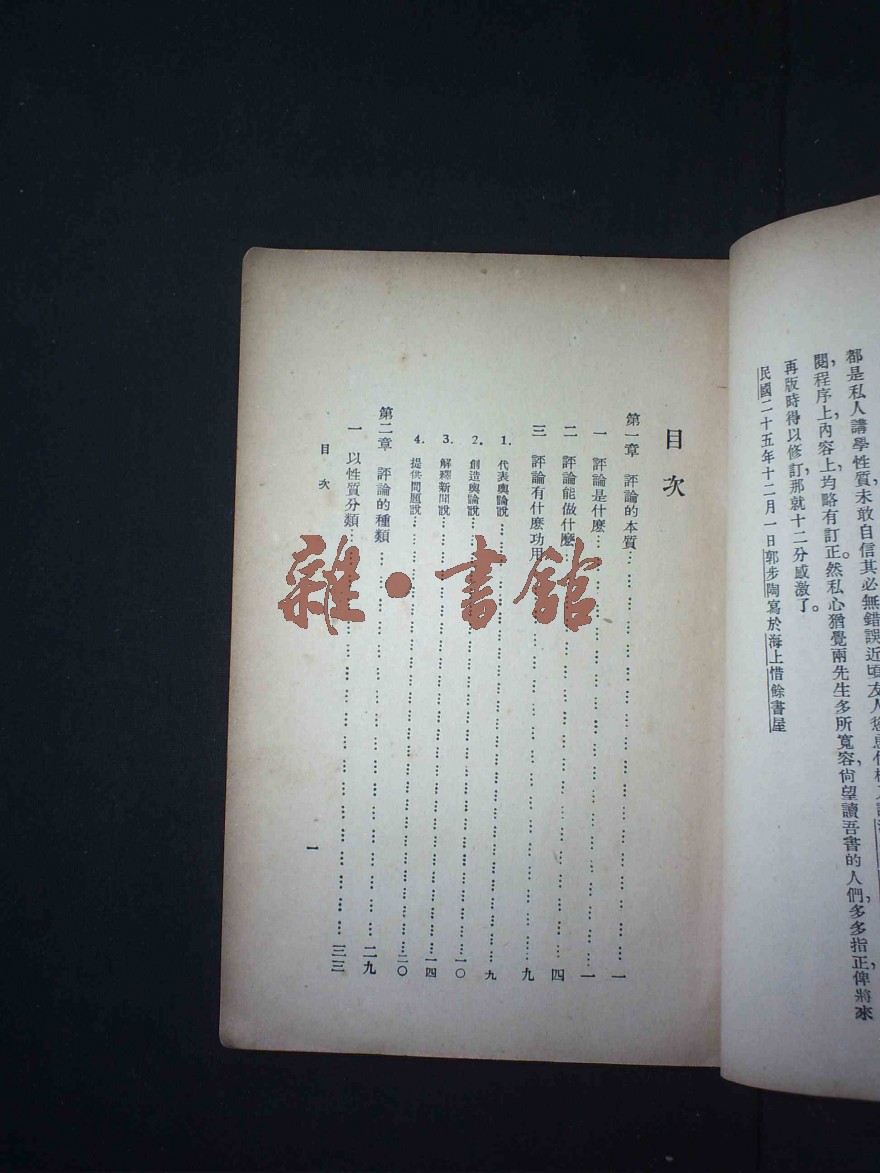 都是私人講學性質，未敢自信其必無錯誤近頃友人
閱，程序上，內容上，均略有訂正。然私心猶覺兩先生多所寬容，尙望讀吾書的人們，多多指正，俾將來
再版時得以修訂，那就十二分感激了。
民國二十五年十二月一日郭步陶寫於海上惜餘書屋
目次
第一章 評論的本質……一
一 評論是什麼……一
二 評論能做什麼……四
三 評論有什麼功用……九
1. 代表輿論說……九
2. 創造輿論說……一〇
3. 解釋新聞說……一四
4. 提供問題說……二〇
第二章 評論的種類……二九
一 以性質分類……三三
目次
一
雜·書館